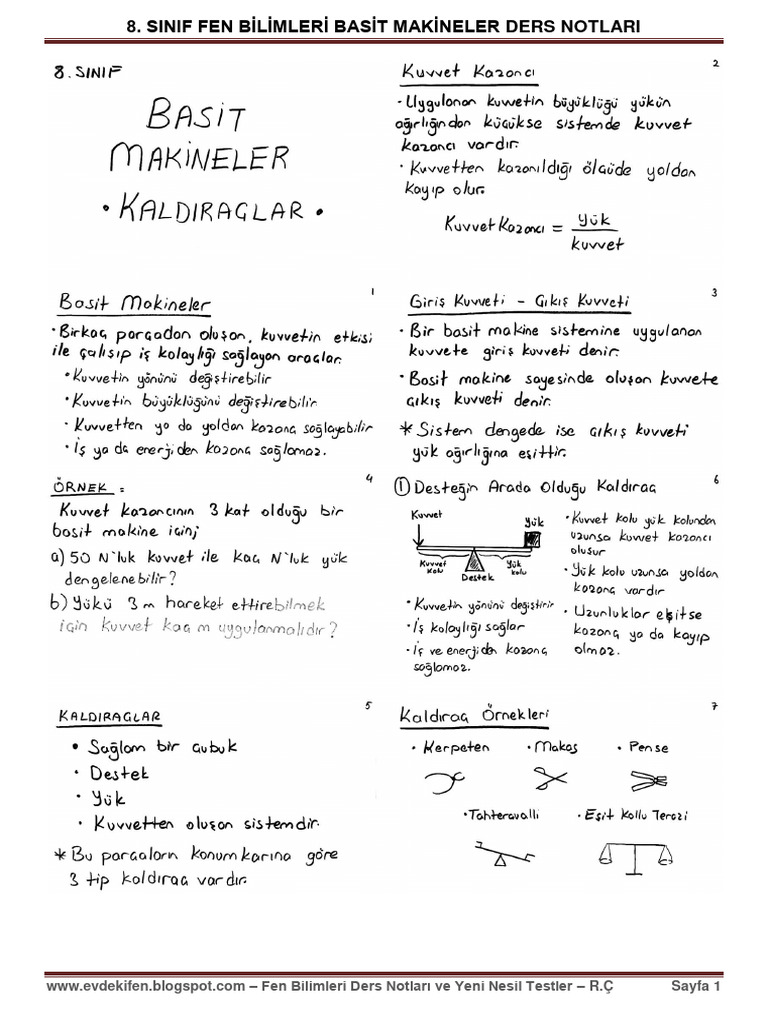 8. SINIF FEN BİLİMLERİ BASİT MAKİNELER DERS NOTLARI
8. SINIF
BASİT
MAKİNELER
• KALDIRAÇLAR •
1
Basit Makineler
• Birkaç parçadan oluşan, kuvvetin etkisi
ile çalışıp iş kolaylığı sağlayan araçlar.
• Kuvvetin yönünü değiştirebilir
• Kuvvetin büyüklüğünü değiştirebilir.
• Kuvvetten ya da yoldan kazanç sağlayabilir
• İş ya da enerjiden kazanç sağlamaz.
2
Kuvvet Kazancı
• Uygulanan kuvvetin büyüklüğü yükün
ağırlığından küçükse sistemde kuvvet
kazancı vardır.
• Kuvvetten kazanıldığı ölçüde yoldan
kayıp olur.
Kuvvet Kazancı = Yük
kuvvet
3
Giriş Kuvveti - Çıkış Kuvveti
• Bir basit makine sistemine uygulanan
kuvvete giriş kuvveti denir.
• Basit makine sayesinde oluşan kuvvete
çıkış kuvveti denir.
* Sistem dengede ise çıkış kuvveti
yük ağırlığına eşittir.
4
ÖRNEK :
Kuvvet kazancının 3 kat olduğu bir
basit makine için;
a) 50 N'luk kuvvet ile kaç N'luk yük
dengelenebilir?
b) Yükü 3 m hareket ettirebilmek
için kuvvet kaç m uygulanmalıdır?
5
KALDIRAÇLAR
• Sağlam bir çubuk
• Destek
• Yük
• Kuvvetten oluşan sistemdir.
* Bu parçaların konumlarına göre
3 tip kaldıraç vardır.
6
① Desteğin Arada Olduğu Kaldıraç
Kuvvet
Yük
Kuvvet
kolu
Destek
Yük
kolu
• Kuvvetin yönünü değiştirir
• İş kolaylığı sağlar
• İş ve enerjiden kazanç
sağlamaz.
• Kuvvet kolu yük kolundan
uzunsa kuvvet kazancı
oluşur
• Yük kolu uzunsa yoldan
kazanç vardır
• Uzunluklar eşitse
kazanç ya da kayıp
olmaz.
7
Kaldıraç Örnekleri
• Kerpeten • Makas • Pense
• Tahteravalli • Eşit Kollu Terazi
www.evdekifen.blogspot.com – Fen Bilimleri Ders Notları ve Yeni Nesil Testler – R.Ç Sayfa 1